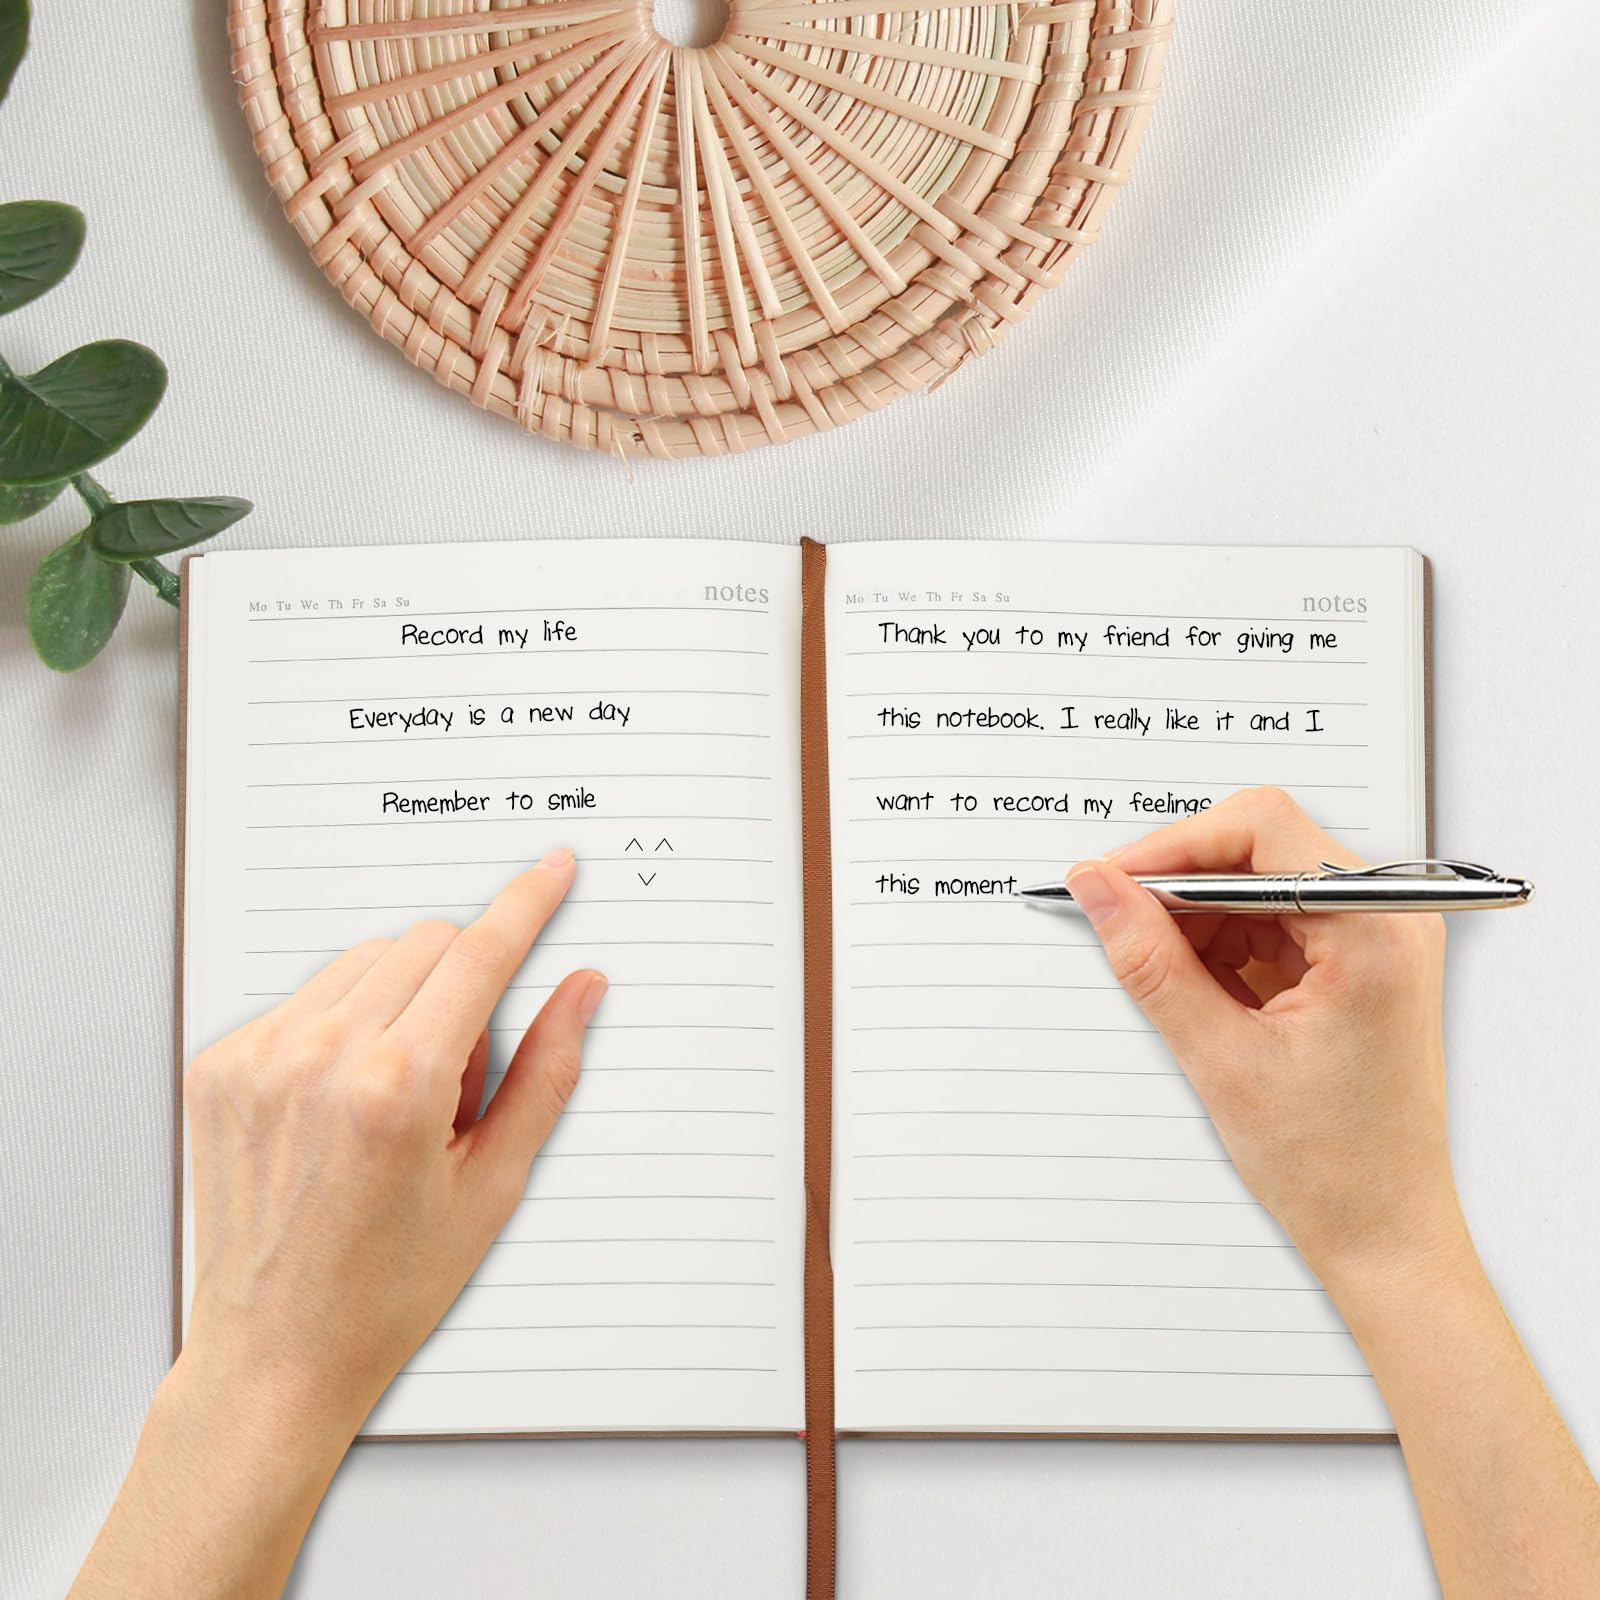 Mo Tu We Th Fr Sa Su
notes
Record my life
Everyday is a new day
Remember to smile
Mo Tu We Th Fr Sa Su
notes
Thank you to my friend for giving me
this notebook. I really like it and I
want to record my feelings
this moment